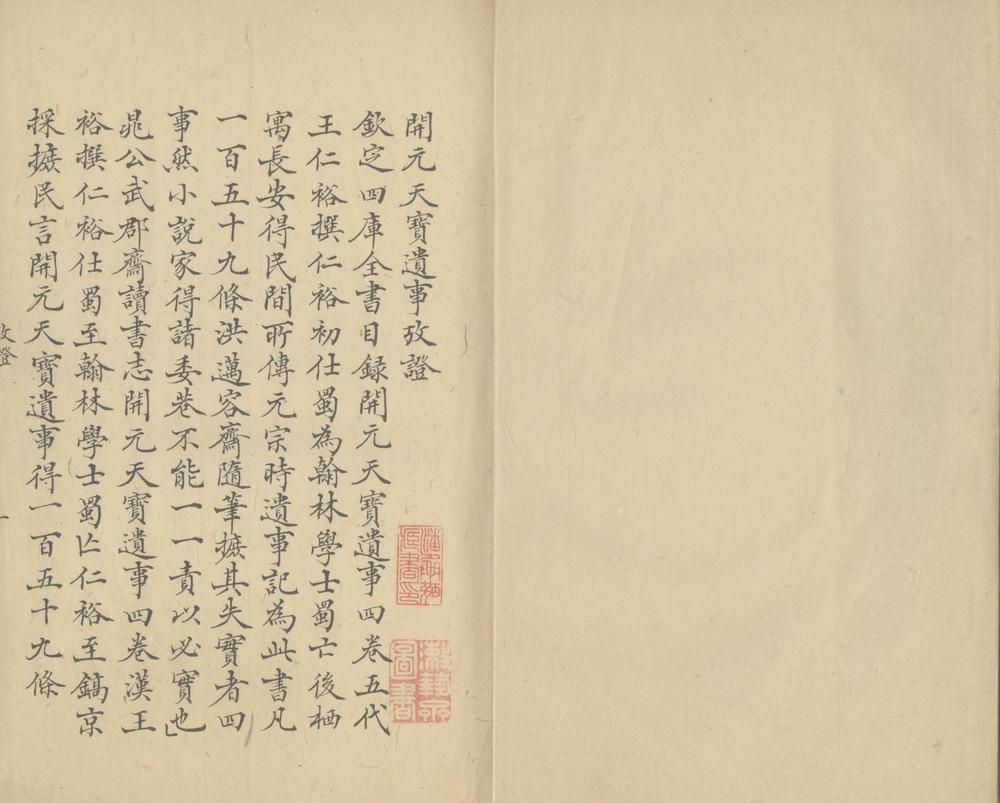 開元天寶遺事攷證
欽定四庫全書目録開元天寶遺事四卷五代
王仁裕撰仁裕初仕蜀為翰林學士蜀亡後栖
寓長安得民間所傳元宗時遺事記為此書凡
一百五十九條洪邁容齋隨筆摭其失實者四
事然小說家得諸委巷不能一一責以必實也
晁公武郡齋讀書志開元天寶遺事四卷漢王
裕撰仁裕仕蜀至翰林學士蜀亡仁裕至鎬京
採摭民言開元天寶遺事得一百五十九條
攷證
一